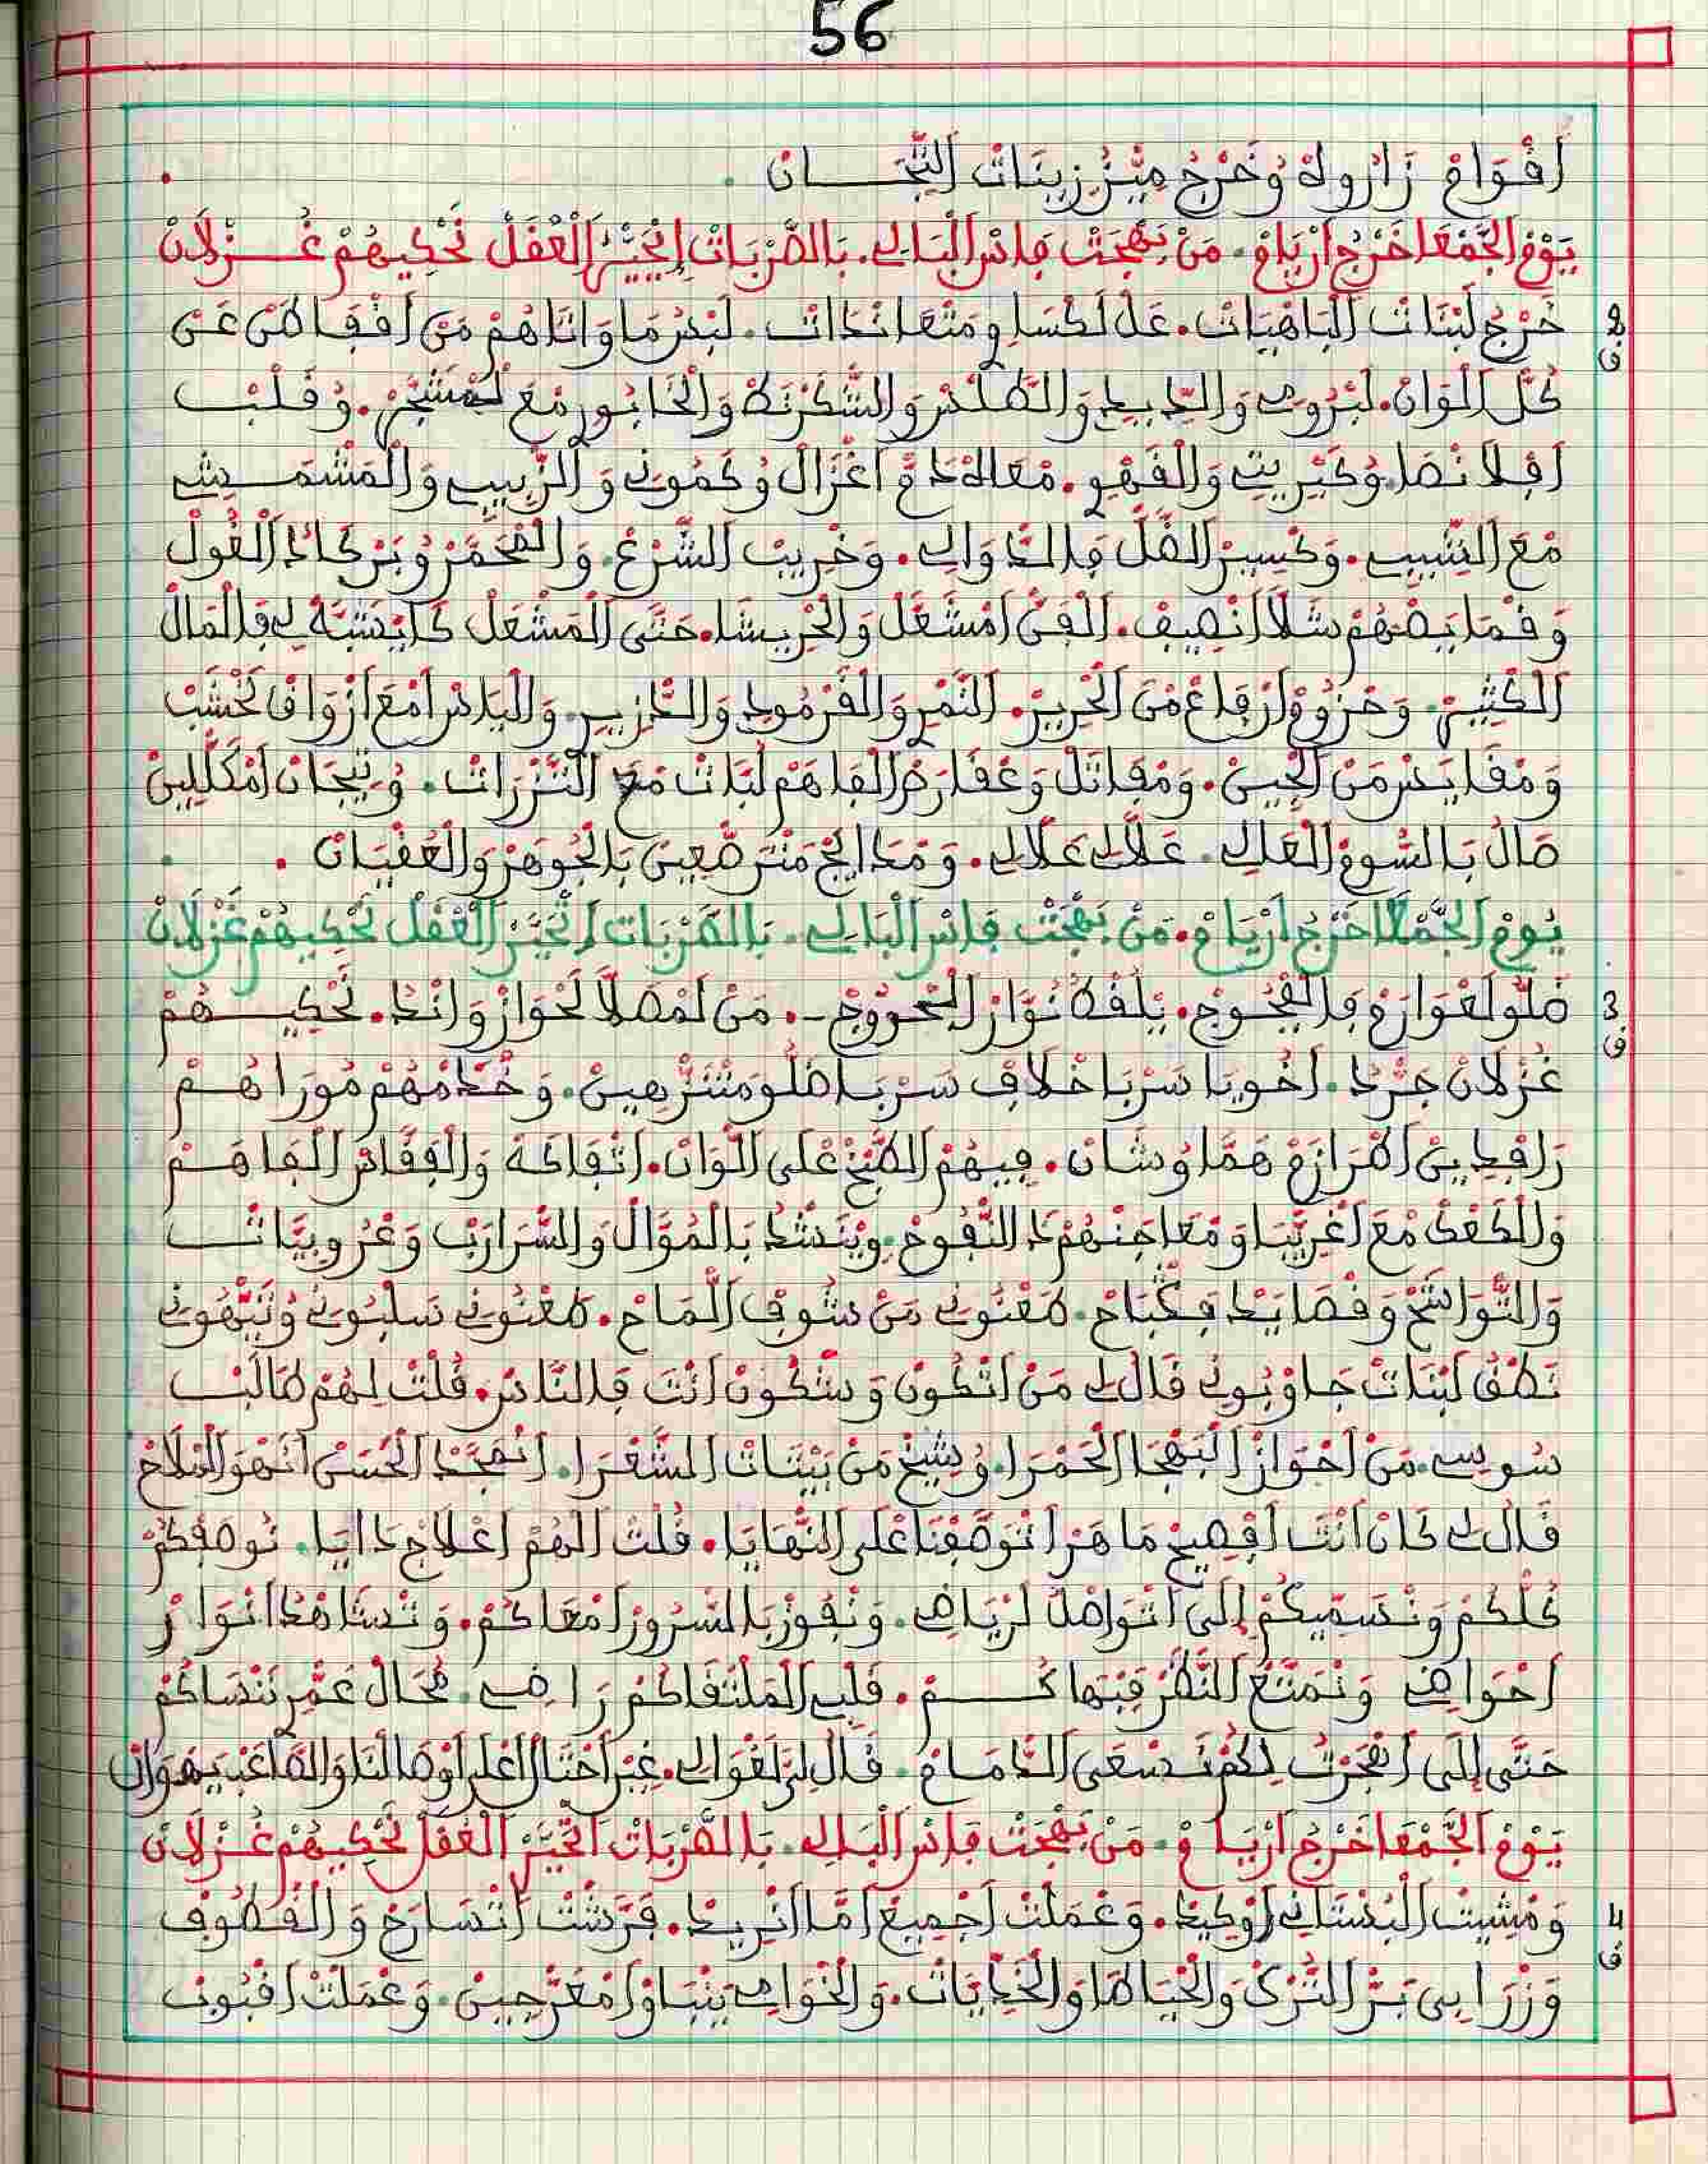 56
اَقْوَامْ زَارُوهْ وُخَرْجُ مِيْزْ زِينَاتْ التِّيجَــــانْ
يَوْمْ الْجَمْعَا خَرْجُ ارْيَامْ. مَنْ بَهْجَتْ فَاسْ الْبَالِي. بَالضَّرْبَاتْ اِتْحَيَّرْ الْعْقَلْ تَحْكِيهُمْ غُــزْلَانْ
2 خَرْجُ لَبْنَاتْ الْبَاهْيَاتْ. عَلْ لَكْسَاوِي مَتْعَانْدَاتْ. لَبْدَرْ مَا وَاتَاهُمْ مَنْ
ف كُلْ اَلْوَانْ. لَبْرُوسِي وَالدِّيدِي وَالْطْلَسْ وَالشَّكَرْنَطْ وَالْخَابُورْ مْعَ لَمْشَجَّرْ. وُقَلْبْ
وُكَبْرِيتِي وَالْقَهْوِي. مْعَاهْ دَمْ اَغْزَالْ وُكَمُّونِي وَالزّْبِيبِي وَالْمَشْمَـــشِي
مْعَ الشِّيبِي. وَكْسِيرْ الْفَلْ فَالدّْوَالِي. وَخْرِيبْ الشَّرْعْ. وَالْمْحَمَّرْ وُبَرْكَادْ الْفُولْ
اَنْصِيفْ. اَلْفَنْ اَمْشَعَّلْ وَالْحْرِيشَا. حَتَّى الْمَشْعَلْ كَايَعْشَبَهْ لِي فَالْمَالْ
الْكْثِيرْ. وَحْزُومْ اَرْفَاعْ مَنْ الْحْرِيرْ. التّْمَرْ وَالْقَرْمُودِي وَالْخَنْزِيرِي وَالْيَاسْ اَمْعَ اَزْوَاقْ لَخْشَبْ
وَمْقَايَسْ مَنْ الْجِينْ. وَمْفَاتَلْ وَعْقَارَطْ الْفَاهَمْ لَبَّاتْ مْعَ الْتَنْزْرَاتْ. وُتِيجَانْ اَمْكَلّْلِينْ
صَالْ بَالسُّومْ الْعَالِي. عَلَّالِي عَلَّالِي. وَمْدَايَجْ مَتْرَصّْعِينْ بَالْجُوهَرْ وَالْعَقْيَانْ
يُومْ الْجَمْعَا خَرْجُ اَرْيَامْ. مَنْ بَهْجَتْ فَاسْ الْبَالِي. بَالضَّرْبَاتْ اَتْحَيَّرْ الْعْقَلْ تَحْكِيهُمْ غَزْلَانْ
3 ضَلُّو لَعْوَارَمْ فَالْفْجُوجْ. يَلْقْطُ نُوَّارْ الْمْرُوجْ. مَنْ لَمْصَلَّا لَحْوَازْ وَانْدْ. تَحْكِيــهُمْ
ف غُزْلَانْ جَرْدْ. اَخُويَا سَرْبَا خْلَافْ سَرْبَا ضَلُّو مَتْنَزّْهِينْ. وَخْدَمْهُمْ مُورَاهُــمْ
رَافْدِينْ اَطْرَازَمْ هَمَّا وُشَانْ. فِيهُمْ الطّْبَخْ عْلَى اَلْوَانْ. اَتْفَاكَهْ وَالْفَقَّاصْ اَلْفَاهَــمْ
وَالْكَعْكْ مْعَ اَغْرِيْبَا وَمْعَاجَنْهُمْ دَالتّْفُوحْ. وِيْنَشْدْ بَالْمُوَّالْ وَالسّْرَارَبْ وَعْرُوبِيَّاتْ
وَالتّْوَاشَحْ وَقْصَايَدْ فَكْبَاحْ. طَعْنُونِي مَنْ شُوفْ الْمَاحْ. طَعْنُونِي سَلْبُونِي وُتَيّْهُونِي
نَطْقُ لَبْنَاتْ جَاوْبُونِي قَالْ لِي مَنْ اَتْكُونْ وَشْكُونْ اَنْتَ فَالنَّاسْ. قُلْتْ لَهُمْ طَالَبْ
سُوسِي. مَنْ اَحْوَازْ الْبَهْجَا الْحَمْرَا. وُشِيخْ مَنْ بَيْتَاتْ الشَّعْرَا. اَنْمَجَّدْ الْحَسْنْ
قَالْ لِي كَانْ اَنْتَ اَفْصِيحْ مَاهَرْ اَتْوَصَّفْنَا عْلَى النّْهَايَا. قُلْتْ الْهُمْ اَعْلَاجْ دَايَا. نُوصَفْكُمْ
كُلْكُمْ وَنْسَمِّيكُمْ اِلَى اَتْوَاصْلُ لَرْيَاضِي. وَنْفُوزْ بَالسُّرُورْ اَمْعَاكُمْ. وَتْشَاهْدْ اَنْوَارْ
اَحْوَاضِي وَنْمَتَّعْ النَّظَرْ فَبْهَاكُــــمْ. قَلْبِي الْمَلْتَقَاكُمْ رَاضِي. مُحَالْ عَمْرِ نَنْسَاكُمْ
حَتَّى اِلَى اَهْجَرْتْ لَكُمْ نَسْعَى الذّْمَامْ. قَالْ لِي لَغْوَالِي. غِيْرْ اَحْتَالْ اَعْلَى اَوْصَالْنَا وَالصَّاعَبْ يَهْوَانْ
يَوْمْ الْجَمْعَا خَرْجُ اَرْيَامْ. مَنْ بَهْجَتْ فَاسْ الْبَالِي. بَالضَّرْبَاتْ اَتْحَيَّرْ الْعْقَلْ تَحْكِيهُمْ غُــزْلَانْ
4 وَمْشِيتْ الْبُسْتَانِي اَوْكِيدْ. وَعْمَلْتْ اَجْمِيعْ اَمَّا اَنْرِيدْ. فَرَّشْتْ اَتْسَارَحْ وَالْقْطُوفْ
ف وَزْرَابِي بَرْ التُّرْكْ وَالْحْيَاطَا وَالْخَدِّيَّاتْ. وَالْخْوَامِي بَيْنْبَاوْ اَمْعَرّْجِينْ. وَعْمَلْتْ اَقْبُوبْ